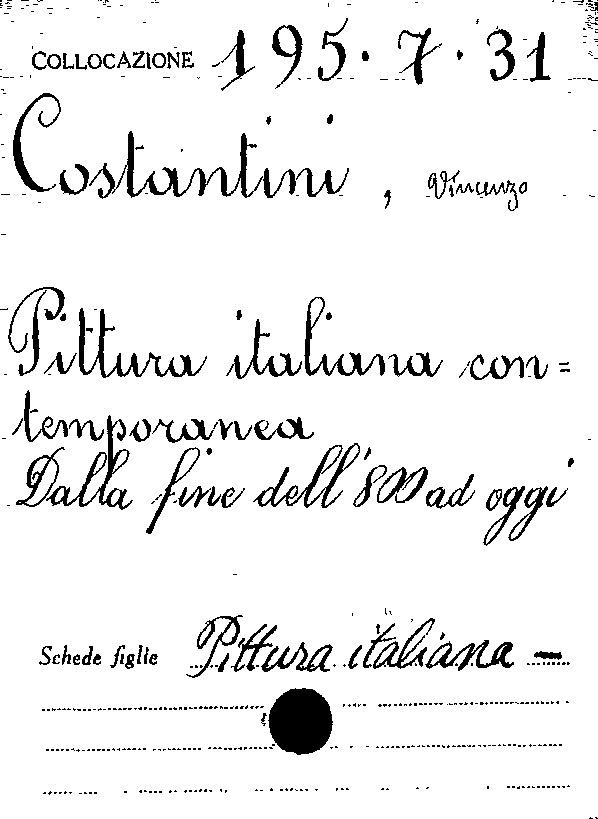 COLLOCAZIONE 195.7.31
Costantini, Vincenzo
Pittura italiana con=
temporanea
Dalla fine dell'800 ad oggi
Schede figlie Pittura italiana –